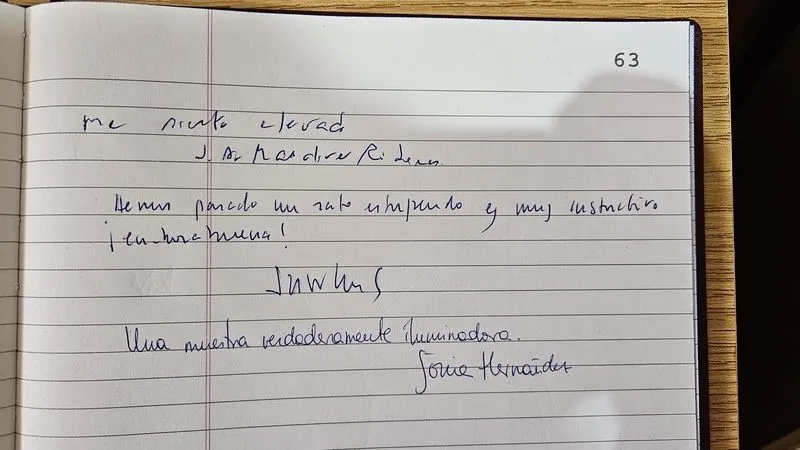 63
me siento elevad
J. A.
Hemos pasado un rato estupendo y muy instructivo
¡enhorabuena!
Una muestra verdaderamente iluminadora.
Sonia Hernández